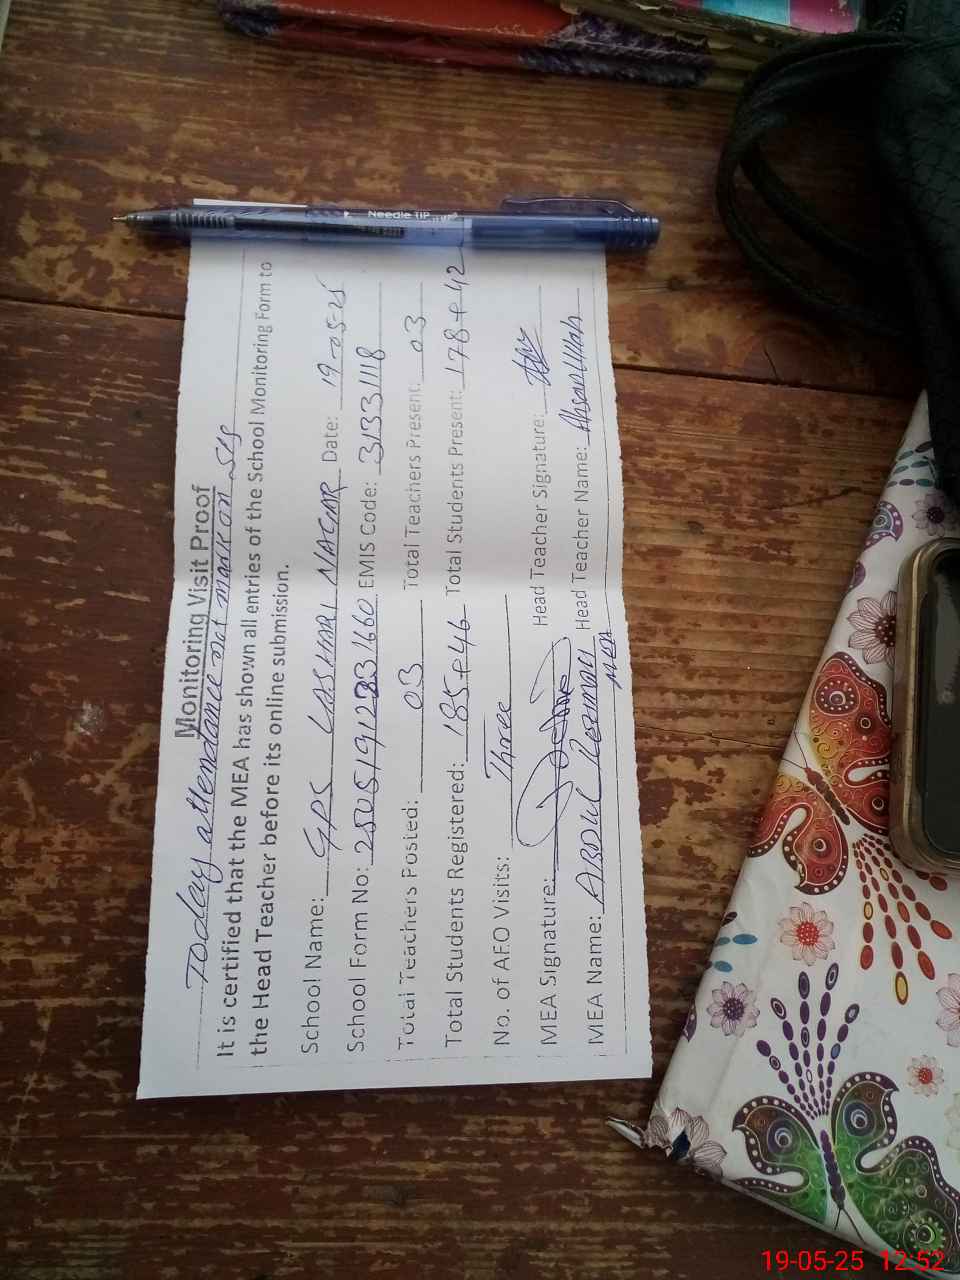 Monitoring Visit Proof
Today attendance not mark on SIS
It is certified that the MEA has shown all entries of the School Monitoring Form to
the Head Teacher before its online submission.
School Name: GPS LASHARI NAGAR Date: 19-05-25
School Form No: EMIS Code: 31331118
Total Teachers Posted: 03 Total Teachers Present: 03
Total Students Registered: 185+46 Total Students Present: 178+42
No. of AEO Visits: Three
MEA Signature: Head Teacher Signature:
MEA Name: ABDUL Rehman Head Teacher Name: Ahsan Ullah
MEA
Needle TIP
19-05-25 12:52